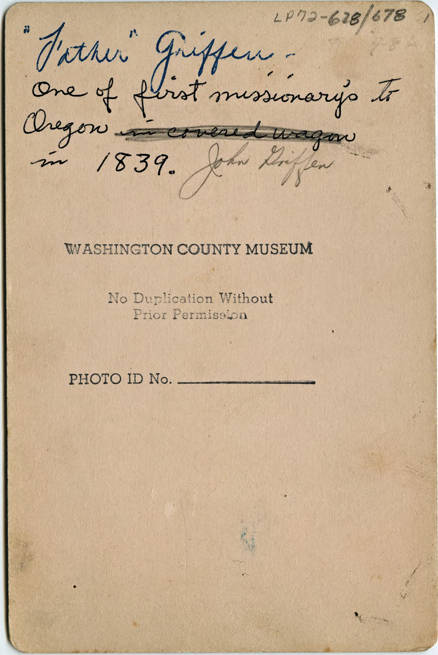 LP72-628/678
"Father" Griffen -
One of first missionary's to
Oregon in covered wagon
in 1839. John Griffen
WASHINGTON COUNTY MUSEUM
No Duplication Without
Prior Permission
PHOTO ID No.